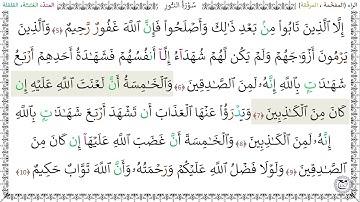 الراء (المفخمة ، المرققة) سُورَةُ النُّور المدّ، الغنّة، القلقلة
إِلَّا ٱلَّذِينَ تَابُوا۟ مِنۢ بَعْدِ ذَٰلِكَ وَأَصْلَحُوا۟ فَإِنَّ ٱللَّهَ غَفُورٌ رَّحِيمٌ (5) وَٱلَّذِينَ
يَرْمُونَ أَزْوَٰجَهُمْ وَلَمْ يَكُن لَّهُمْ شُهَدَآءُ إِلَّآ أَنفُسُهُمْ فَشَهَٰدَةُ أَحَدِهِمْ أَرْبَعُ
شَهَٰدَٰتٍۭ بِٱللَّهِ إِنَّهُۥ لَمِنَ ٱلصَّٰدِقِينَ (6) وَٱلْخَٰمِسَةُ أَنَّ لَعْنَتَ ٱللَّهِ عَلَيْهِ إِن
كَانَ مِنَ ٱلْكَٰذِبِينَ (7) وَيَدْرَؤُا۟ عَنْهَا ٱلْعَذَابَ أَن تَشْهَدَ أَرْبَعَ شَهَٰدَٰتٍۭ بِٱللَّهِ
إِنَّهُۥ لَمِنَ ٱلْكَٰذِبِينَ (8) وَٱلْخَٰمِسَةَ أَنَّ غَضَبَ ٱللَّهِ عَلَيْهَآ إِن كَانَ مِنَ
ٱلصَّٰدِقِينَ (9) وَلَوْلَا فَضْلُ ٱللَّهِ عَلَيْكُمْ وَرَحْمَتُهُۥ وَأَنَّ ٱللَّهَ تَوَّابٌ حَكِيمٌ (10)